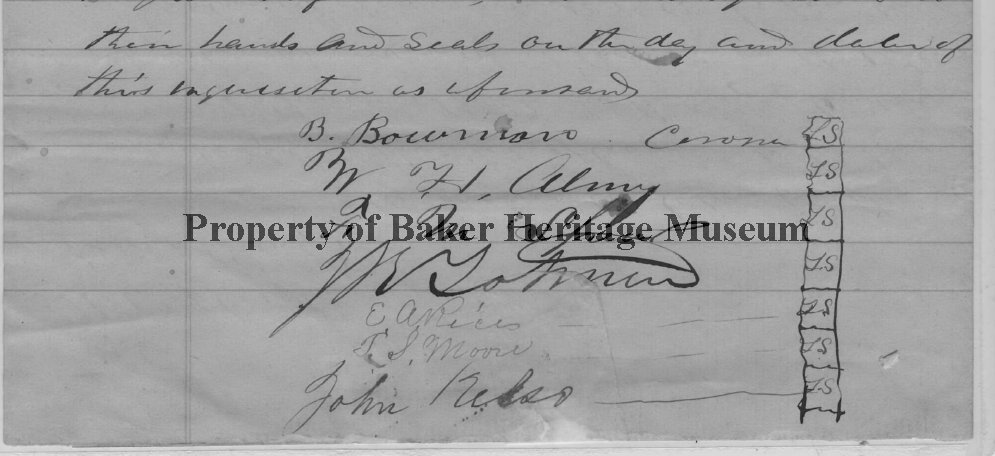 their hands and Seals on the day and date of
this inquisition as aforesaid
B. Bowman Coroner LS
W. H. Almy LS
Property of Baker Heritage Museum
LS
LS
E. A. Rices LS
T. S. Moore LS
John Kelso LS